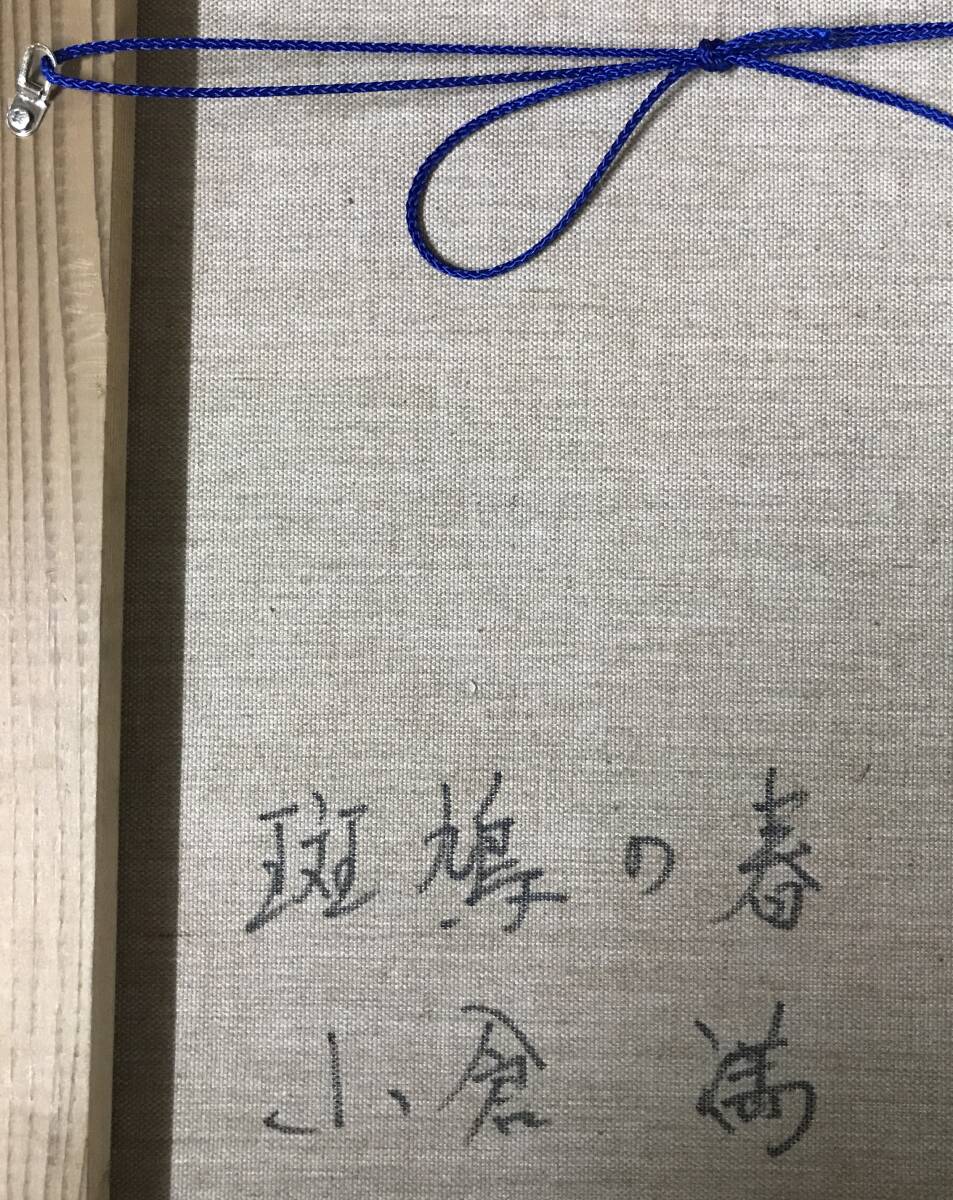 斑鳩の春
小倉 満